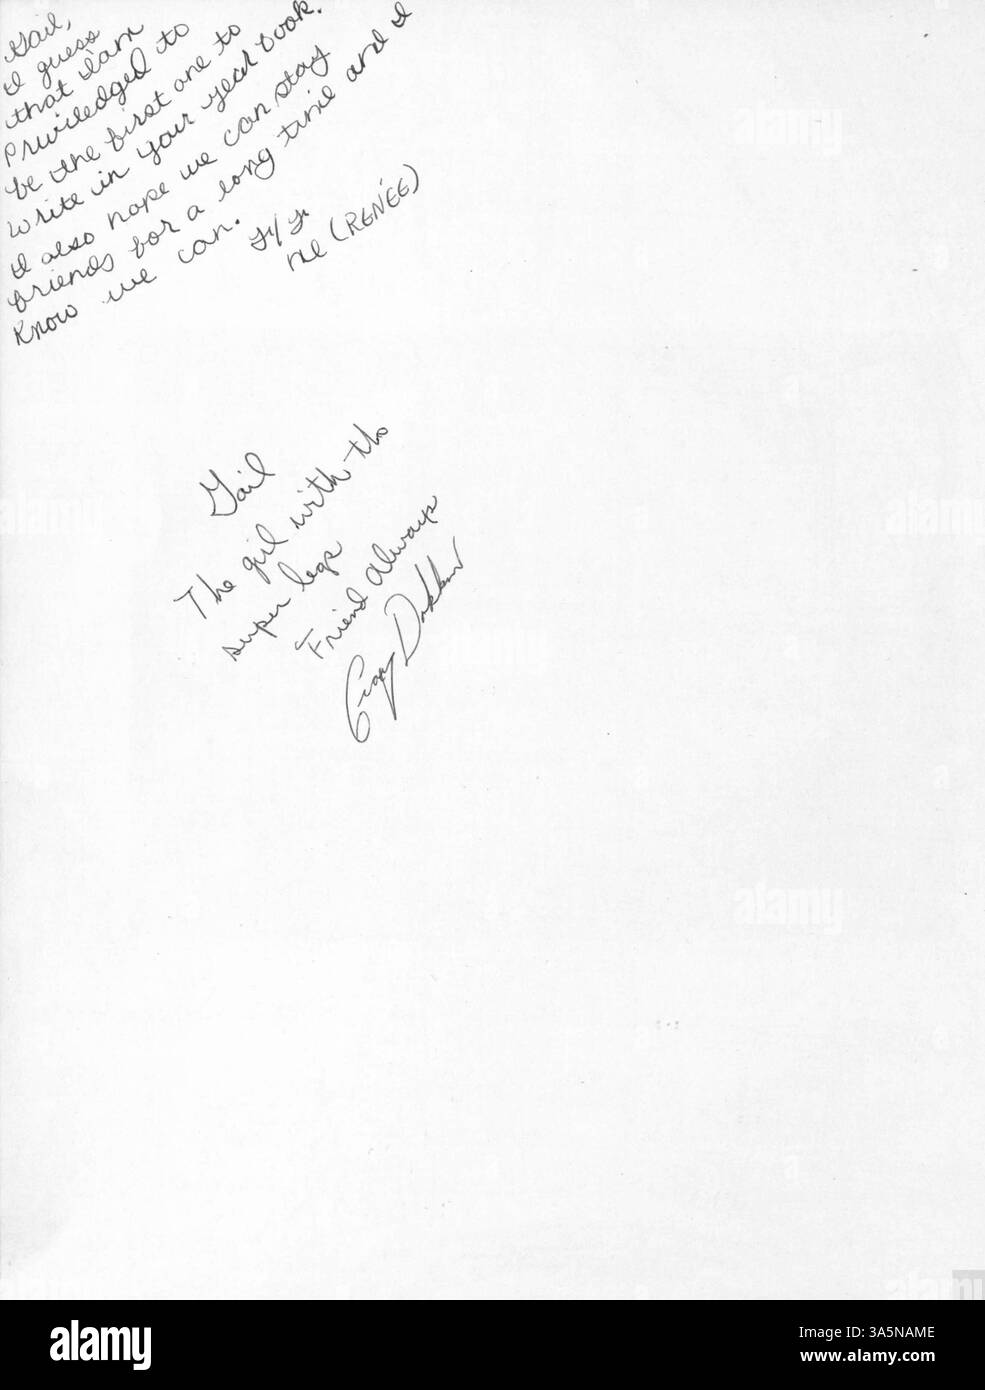 Gail,
I guess
that I am
Priviledged to
be the first one to
write in your year book.
I also hope we can stay
friends for a long time and I
know we can.
me (RENÉE)
Gail
The girl with the
super legs
Friend Always
Gary
alamy
alamy
alamy
alamy
Image ID: 3A5NAME
www.alamy.com